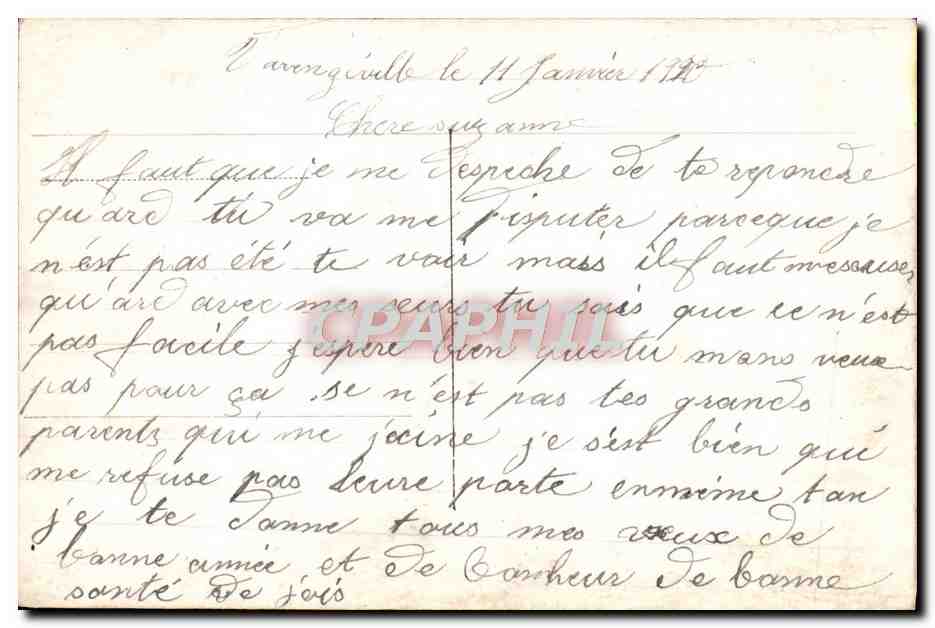 Varengeville le 11 Janvier 19
Chere suzanne
Il faut que je me despeche de te reponcre
qu'and tu va me disputer parceque je
n'est pas été te voir mais il faut mescuser
qu'and avec mes seurs tu sais que ce n'est
CPAPHIL
pas facile j'espere bien que tu mans veux
pas pour ça se n'est pas tes grands
parents qui me jaine je s'est bien qui
me refuse pas leure porte enmeme tan
je te donne tous mes vœux de
bonne année et de bonheur de bonne
santé de jois